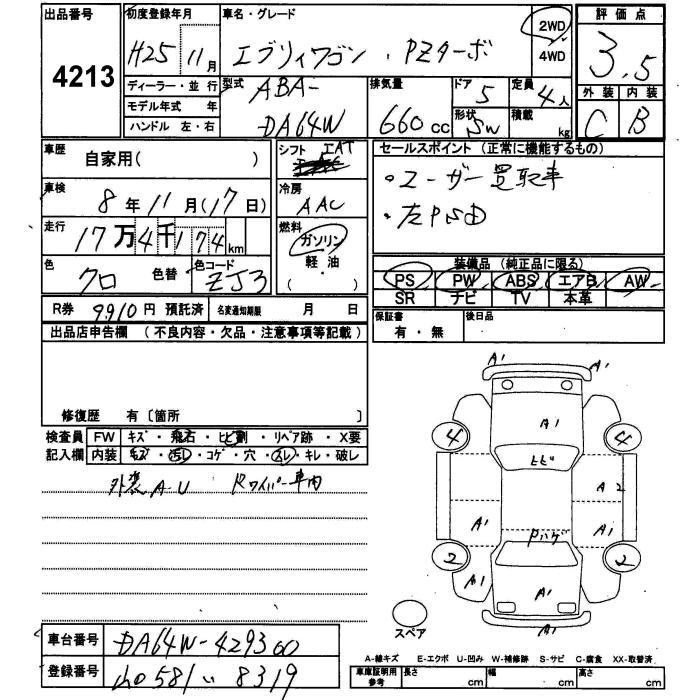 出品番号
4213
初度登録年月
H25 11月
車名・グレード
エブリイワゴン ・ PZターボ
2WD
4WD
評価点
3.5
外装 内装
C B
ディーラー・並行
モデル年式 年
ハンドル 左・右
型式
ABA-
DA64W
排気量
660cc
ドア
5
形状
SW
定員
4人
積載
kg
車歴
自家用( )
車検
8年11月(17日)
走行
17万4千174km
色
クロ
色替
色コード
ZJ3
シフト IAT
冷房
AAC
燃料
ガソリン
軽油
( ・ )
セールスポイント (正常に機能するもの)
・ユーザー買取車
・左PSD
装備品 (純正品に限る)
PS PW ABS エアB AW
SR ナビ TV 本革
R券 9910円 預託済
名変通知期限 月 日
保証書
有・無
後日品
出品店申告欄 (不良内容・欠品・注意事項等記載)
修復歴 有〔箇所 〕
検査員
記入欄
FW キズ・飛石・ヒビ割・リペア跡・X要
内装 キズ・汚レ・コゲ・穴・スレ・キレ・破レ
外装AU Rワイパー車内
A1
A1
A1
4 4
ヒビ
A2
A1
A1
Pハゲ
2 2
A1
A1
A1
スペア
車台番号
DA64W-429360
登録番号
581 い 8319
A-線キズ E-エクボ U-凹み W-補修跡 S-サビ C-腐食 XX-取替済
車庫証明用
参考
長さ cm
幅 cm
高さ cm